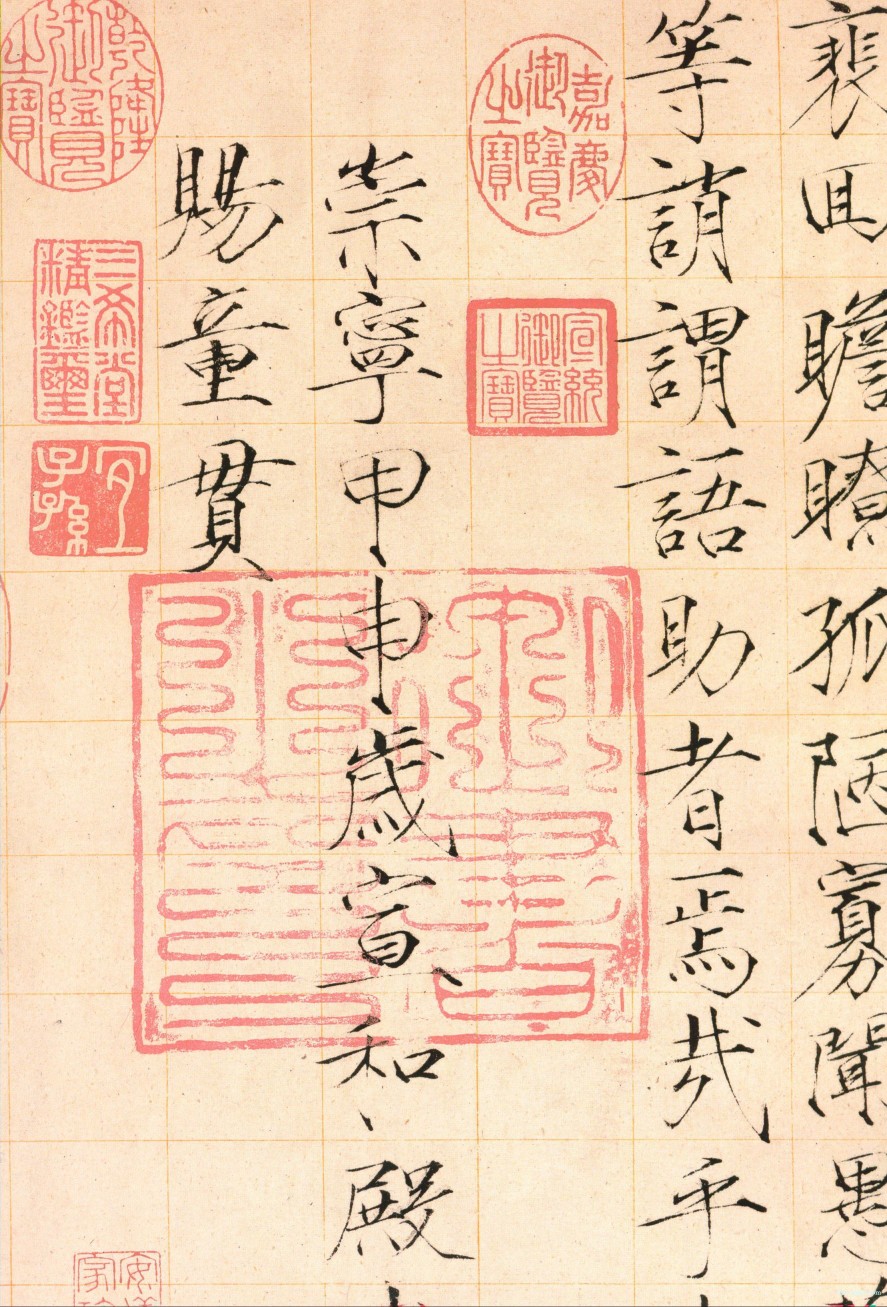 裵囘瞻瞭孤陋寡聞愚
等誚謂語助者焉哉乎
嘉慶
御覽
之寶
宣統
御覽
之寶
崇寧甲申歲宣和殿
賜童貫
乾隆
御覽
之寶
三希堂
精鑑璽
宜
子孫